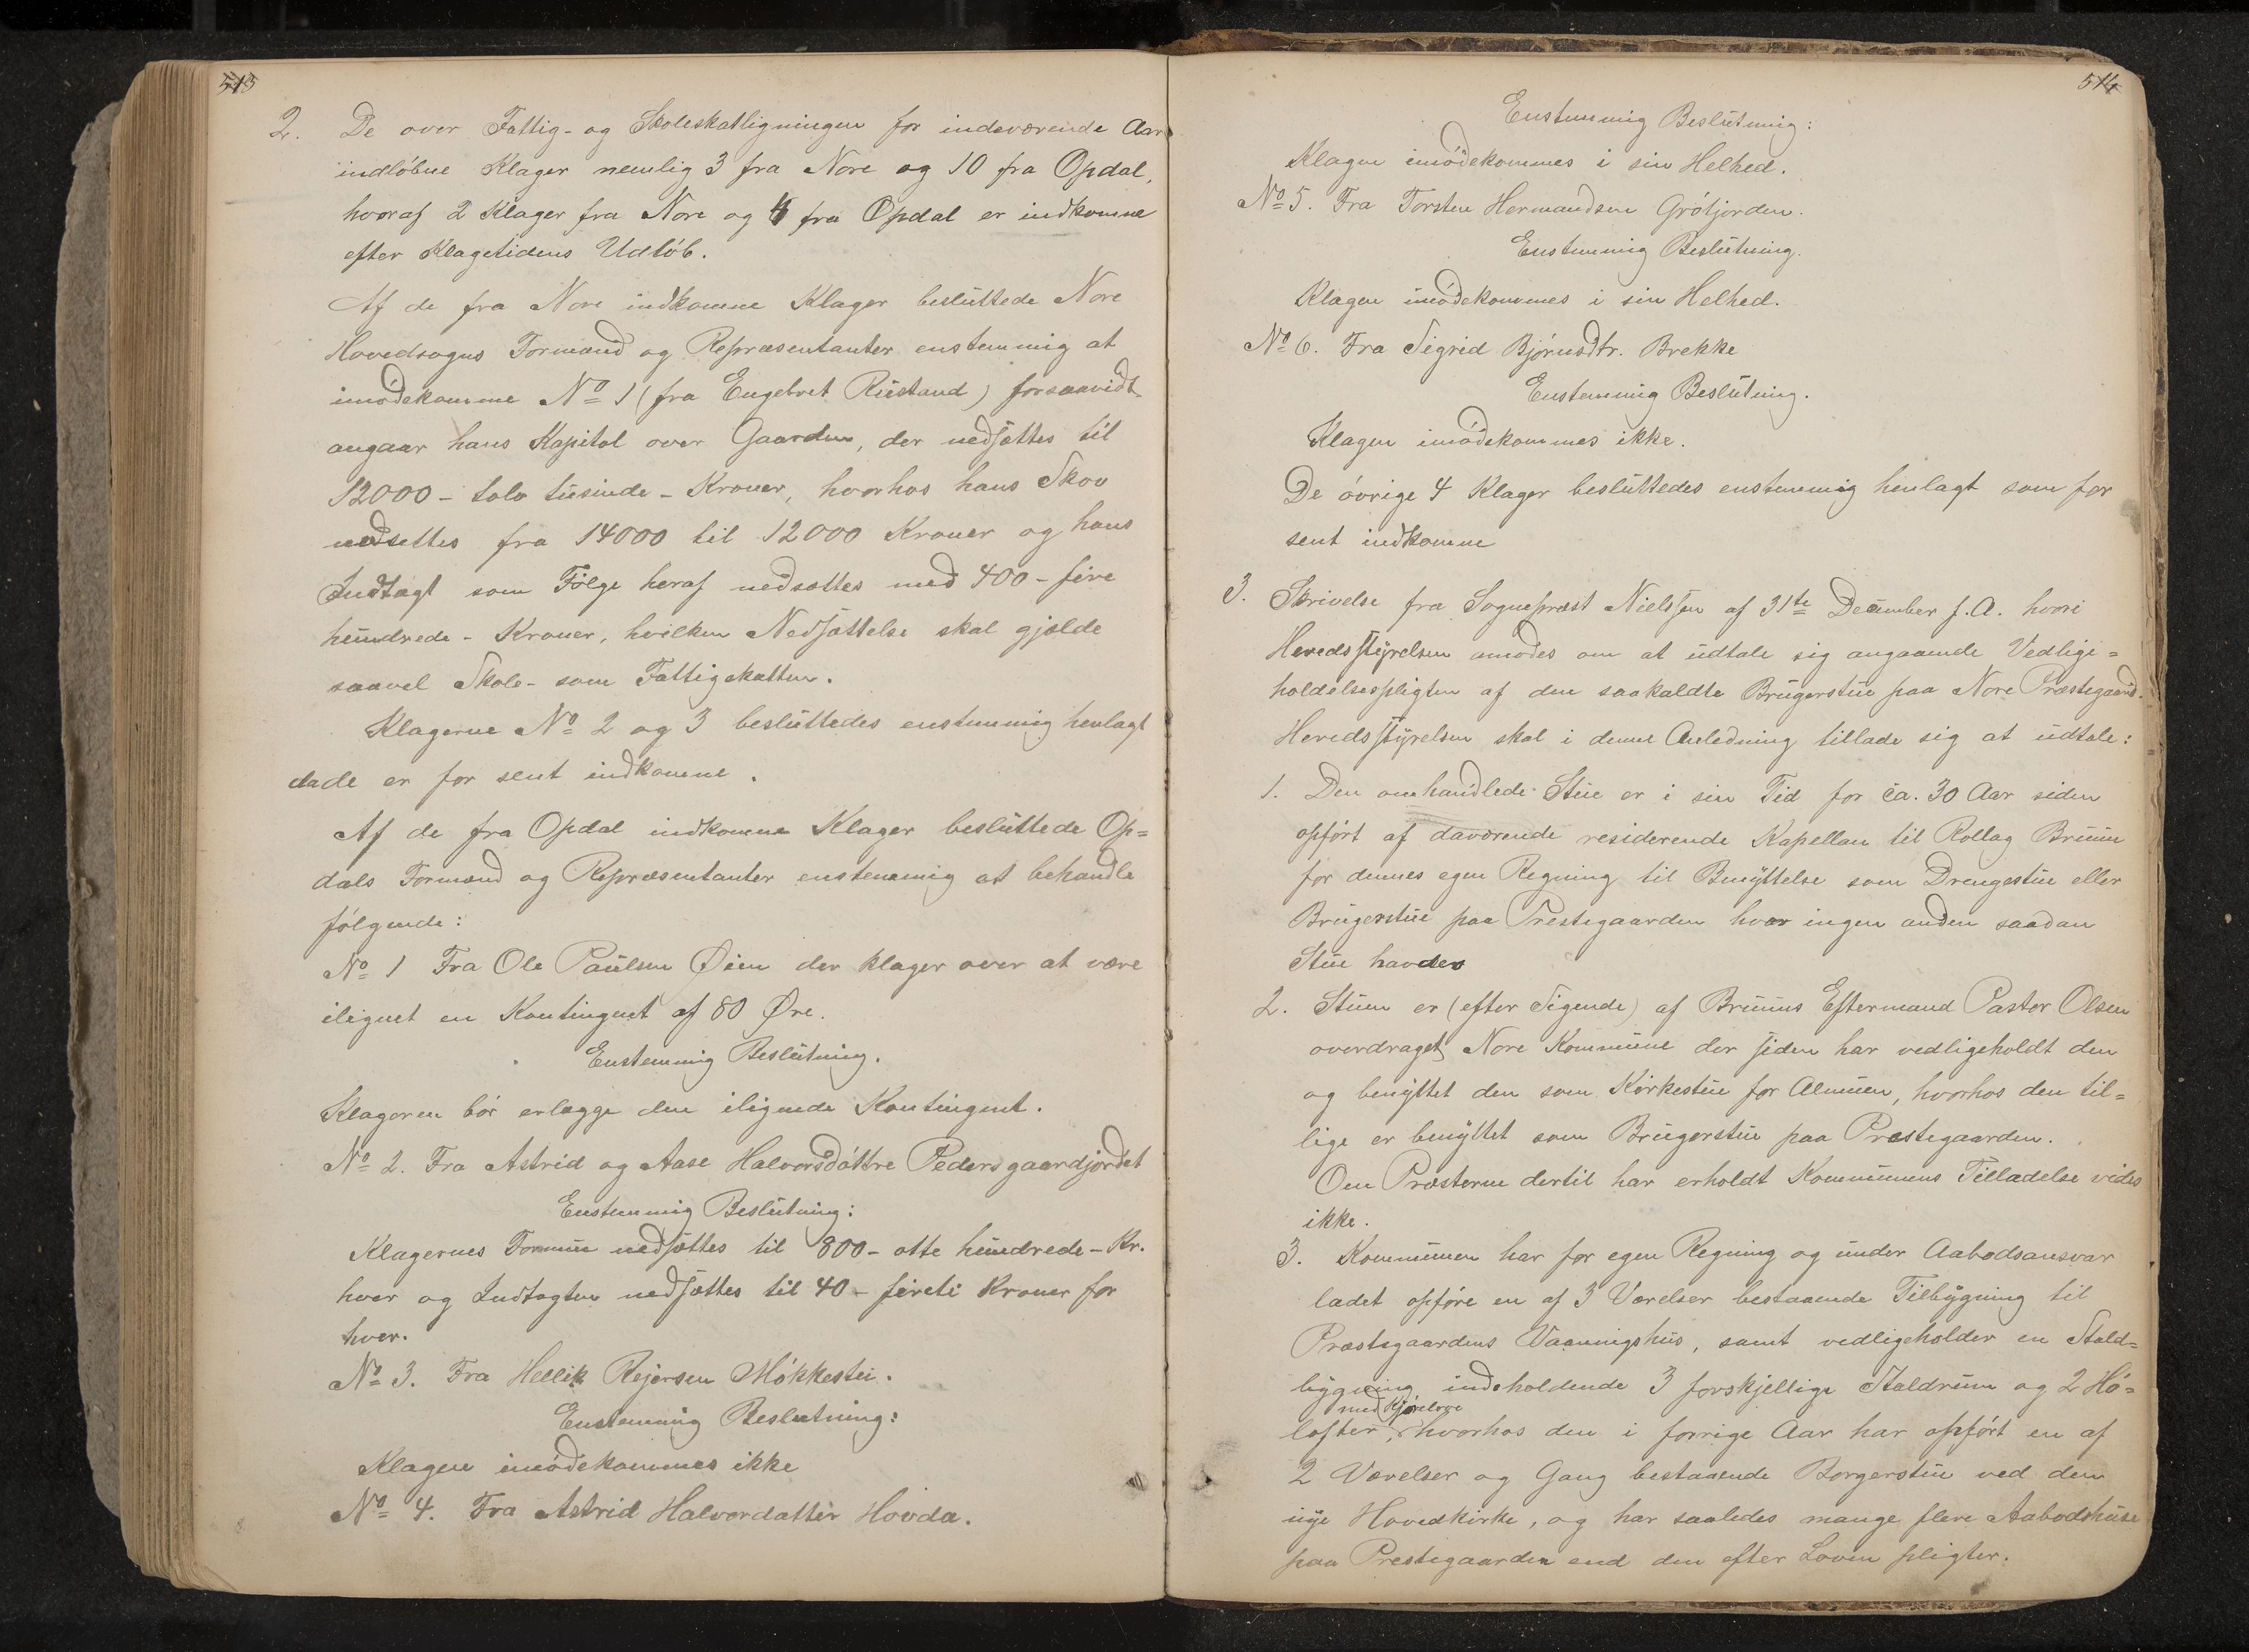 513
2. De over Fattig- og Skoleskatligningen for indeværende Aar
indløbne Klager nemlig 3 fra Nore og 10 fra Opdal,
hvoraf 2 Klager fra Nore og 4 fra Opdal er indkomne
efter Klagetidens Udløb.
Af de fra Nore indkomne Klager besluttede Nore
Hovedsogns Formænd og Repræsentanter enstemmig at
imødekomme No 1 (fra Engebret Rustand) forsaavidt
angaar hans Kapital over Gaarden, der nedsættes til
12000 - tolv tusinde - Kroner, hvorhos hans Skov
nedsettes fra 14000 til 12000 Kroner og hans
Indtægt som Følge heraf nedsættes med 400 - fire
hundrede - Kroner, hvilken Nedsættelse skal gjælde
saavel Skole- som Fattigskatten.
Klagerne No 2 og 3 besluttedes enstemmig henlagt
da de er for sent indkomne.
Af de fra Opdal indkomne Klager besluttede Op=
dals Formænd og Repræsentanter enstemmig at behandle
følgende:
No 1 Fra Ole Paulsen Øien der klager over at være
ilignet en Kontingent af 80 Øre.
Enstemmig Beslutning.
Klageren bør erlægge den ilignede Kontingent.
No 2. Fra Astrid og Aase Halvorsdøttre Pedersgaardjordet
Enstemmig Beslutning:
Klagernes Formue nedsættes til 800 - otte hundrede - Kr.
hver og Indtægten nedsættes til 40 - fireti Kroner for
hver.
No 3. Fra Hellik Rejersen Møkkestui.
Enstemmig Beslutning:
Klagen imødekommes ikke
No 4. Fra Astrid Halvordatter Hovda.
514
Enstemmig Beslutning:
Klagen imødekommes i sin Helhed.
No 5. Fra Torsten Hermandsen Grötjorden.
Enstemmig Beslutning.
Klagen imødekommes i sin Helhed.
No 6. Fra Sigrid Bjørnsdtr. Brekke
Enstemmig Beslutning.
Klagen imødekommes ikke.
De øvrige 4 Klager besluttedes enstemmig henlagt som for
sent indkomne
3. Skrivelse fra Sognepræst Nielssen af 31te December f.A. hvori
Heredsstyrelsen anmodes om at udtale sig angaaende Vedlige=
holdelsespligten af den saakaldte Brugerstue paa Nore Præstegaard.
Heredsstyrelsen skal i denne Anledning tillade sig at udtale:
1. Den omhandlede Stue er i sin Tid for ca. 30 Aar siden
opført af daværende residerende Kapellan til Rollag Bruun
for dennes egen Regning til Benyttelse som Drengestue eller
Brugerstue paa Prestegaarden hvor ingen anden saadan
Stue havdes
2. Stuen er (efter Sigende) af Bruuns Eftermand Pastor Olsen
overdraget Nore Kommune der siden har vedligeholdt den
og benyttet den som Kirkestue for Almuen, hvorhos den til=
lige er benyttet som Brugerstue paa Præstegaarden.
Om Præsterne dertil har erholdt Kommunens Tilladelse vides
ikke.
3. Kommunen har for egen Regning og under Aabodsansvar
ladet opføre en af 3 Værelser bestaaende Tilbygning til
Præstegaardens Vaaningshus, samt vedligeholder en Stald=
bygning indeholdende 3 forskjellige Staldrum og 2 Hø=
med Kjørelove
lofter, hvorhos den i forrige Aar har opført en af
2 Værelser og Gang bestaaende Borgerstue ved den
nye Hovedkirke, og har saaledes mange flere Aabodshuse
paa Prestegaarden end den efter Loven pligter.